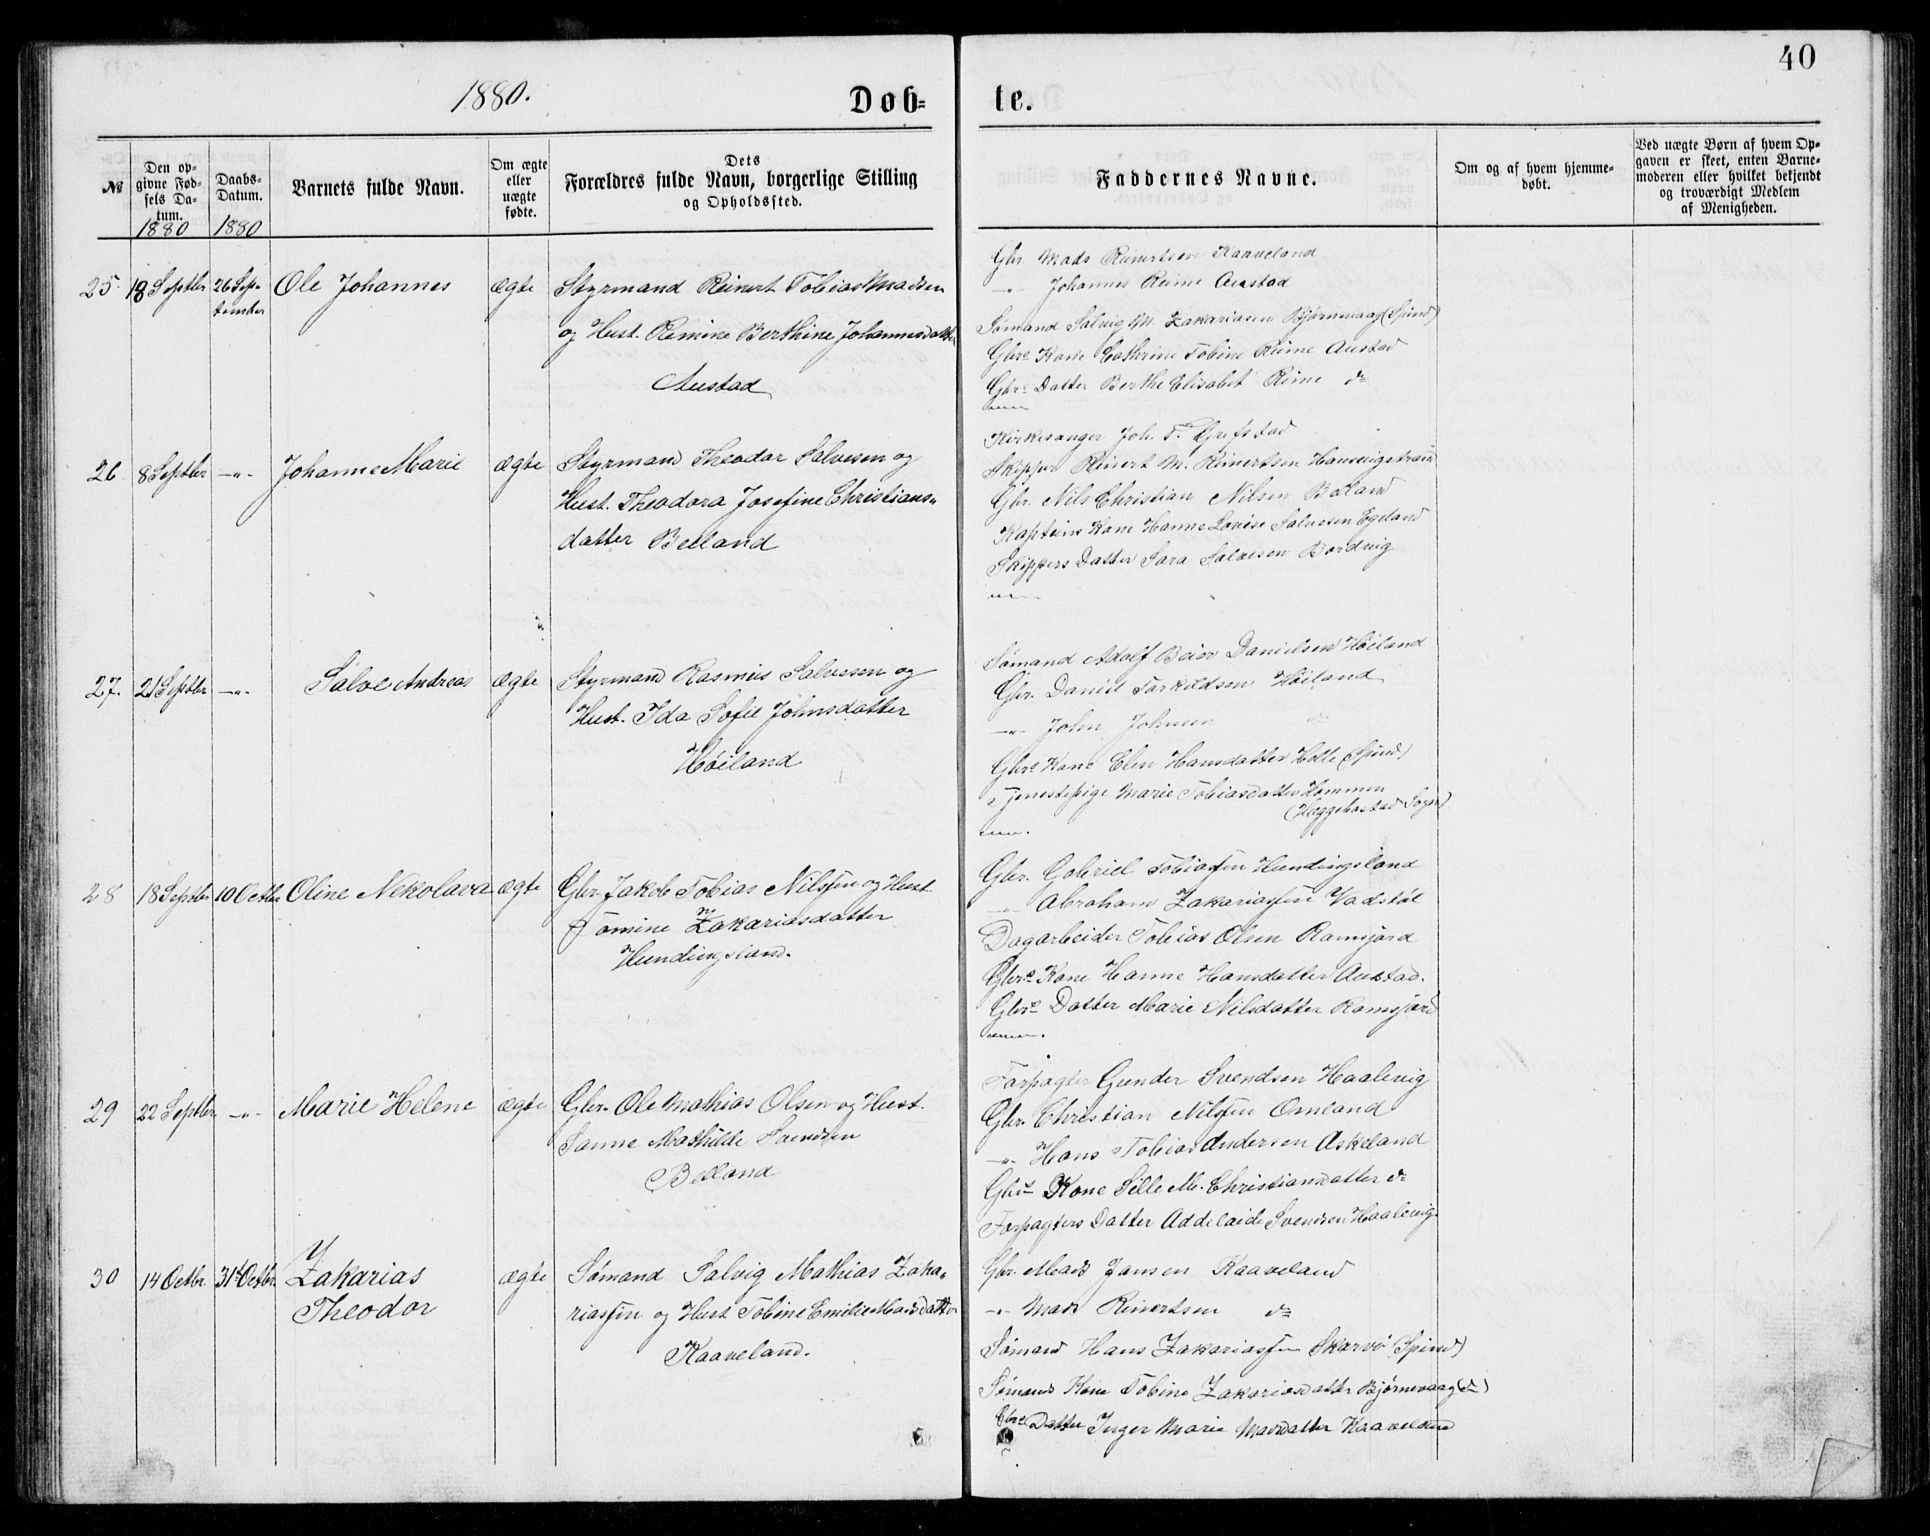 40
1880.
Døb-
te.
№
Den op-
givne Fød-
sels Da-
tum.
1880
Daabs-
Datum.
1880
Barnets fulde Navn.
Om ægte
eller
uægte
fødte.
Dets
Forældres fulde Navn, borgerlige Stilling
og Opholdssted.
Faddernes Navne.
Om og af hvem hjemme-
døbt.
Ved uægte Børn af hvem Op-
gaven er skeet, enten Barne-
moderen eller hvilket bekjendt
og troværdigt Medlem
af Menigheden.
25. 18 Septbr 26 Sep-
tember
Ole Johannes
ægte
Styrmand Reinert Tobias Madsen
og Hust. Remine Berthine Johannesdatter
Austad
Gbr. Mads Reinertsen Kaaveland
-"- Johannes Reime Austad
Sømand Salvig M. Zakariasen Bjørnevaag (Spind)
Gbrs Kone Cathrine Tobine Reime Austad
Gbrs Datter Berthe Elisabet Reime do
26 8 Septbr -"- Johanne Marie
ægte
Styrmand Theodor Salvesen og
Hust. Theodora Josefine Christians-
datter Belland
Kirkesanger Joh. T. Grefstad
Skipper Reinert M. Reinertsen
Gbr. Nils Christian Nilsen
Kapteins Kone Hanne Lovise Salvesen Egeland
Skippers Datter Sara Salvesen Bordvig
27. 21 Septbr -"- Salve Andreas
ægte
Styrmand Rasmus Salvesen og
Hust. Ida Sofie Johnsdatter
Høiland
Sømand Adolf Beier Danielsen Høiland
Gbr. Daniel Tarkildsen Høiland
-"- John Johnsen do
Gbrs Kone Elen Hansdatter Helle (Spind)
Tjenestepige Marie Tobiasdatter Hommen
(Hæggebostad Sogn)
28 18 Septbr 10 Octbr Oline Nikolava
ægte
Gbr. Jakob Tobias Nilssen og Hust
Tomine Zakariasdatter
Hundingsland.
Gbr. Gabriel Tobiassen Hundingsland
-"- Abraham Zakariassen Vadstøl
Dagarbeider Tobias Olsen Ramsjord
Gbrs Kone Hanne Hansdatter Austad.
Gbrs Datter Marie Nilsdatter Ramsjord
29 22 Septbr -"- Marie Helene
ægte
Gbr. Ole Mathias Olsen og Hust.
Sanne Mathilde Svendsen
Belland
Forpagter Gunder Svendsen Haalevig
Gbr. Christian Nilssen Omland
-"- Hans Tobias Andersen Askeland
Gbrs Kone Sille M. Christiansdatter do
Forpagters Datter Addelaide Svendsen Haalevig
30 14 Octbr. 31 Octbr. Zakarias
Theodor
ægte
Sømand Salvig Mathias Zaka-
riassen og Hust Tobine Emilie Madsdatter
Kaaveland.
Gbr. Mads Jansen Kaaveland
-"- Mads Reinertsen do
Sømand Hans Zakariassen Skarvø (Spind)
Sømands Kone Tobine Zakariasdatter Bjørnevaag (do)
Gbrs Datter Inger Marie Madsdatter Kaaveland